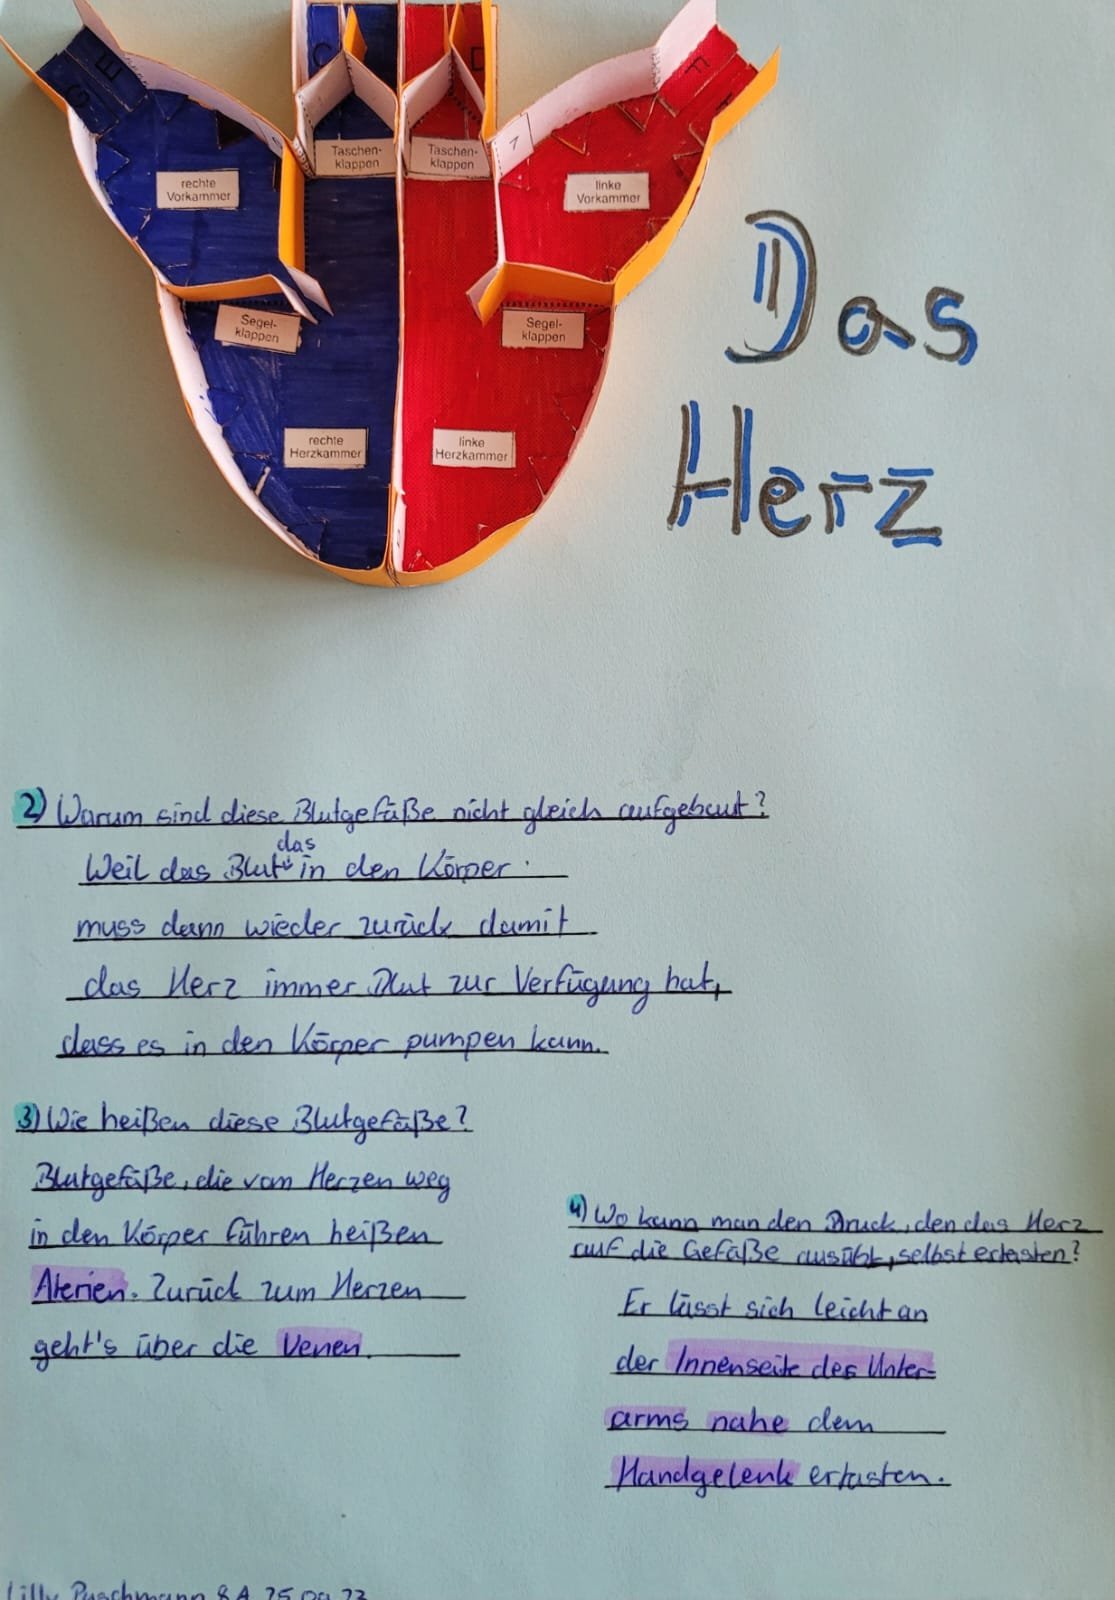 G
E
C
D
F
rechte
Vorkammer
Taschen-
klappen
Taschen-
klappen
1
linke
Vorkammer
Segel-
klappen
Segel-
klappen
rechte
Herzkammer
linke
Herzkammer
Das
Herz
2) Warum sind diese Blutgefäße nicht gleich aufgebaut?
das
Weil das Blut in den Körper
muss dann wieder zurück damit
das Herz immer Blut zur Verfügung hat,
dass es in den Körper pumpen kann.
3) Wie heißen diese Blutgefäße?
Blutgefäße, die vom Herzen weg
in den Körper führen heißen
Aterien. Zurück zum Herzen
geht's über die Venen.
4) Wo kann man den Druck, den das Herz
auf die Gefäße ausübt, selbst ertasten?
Er lässt sich leicht an
der Innenseite des Unter-
arms nahe dem
Handgelenk ertasten.
Lilly Puschmann 8A